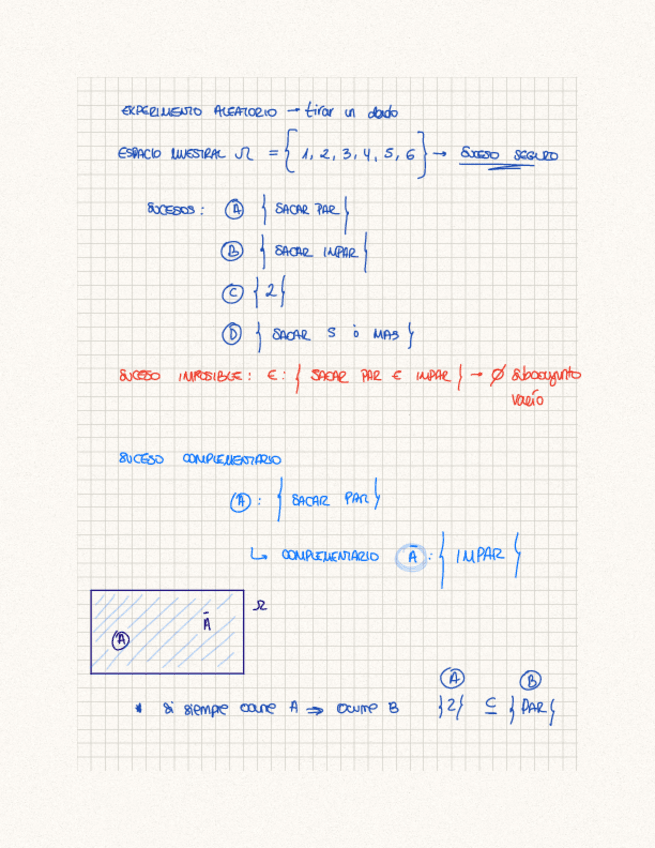 EXPERIMENTO ALEATORIO → tirar un dado
ESPACIO MUESTRAL Ω = { 1, 2, 3, 4, 5, 6 } → SUCESO SEGURO
SUCESOS: A { SACAR PAR }
B { SACAR IMPAR }
C { 2 }
D { SACAR 5 ó MAS }
SUCESO IMPOSIBLE: E: { SACAR PAR E IMPAR } → ∅ subconjunto
vacío
SUCESO COMPLEMENTARIO
A: { SACAR PAR }
↳ COMPLEMENTARIO Ā: { IMPAR }
Ω
A Ā
A B
* si siempre ocurre A ⇒ ocurre B {2} ⊆ { PAR }